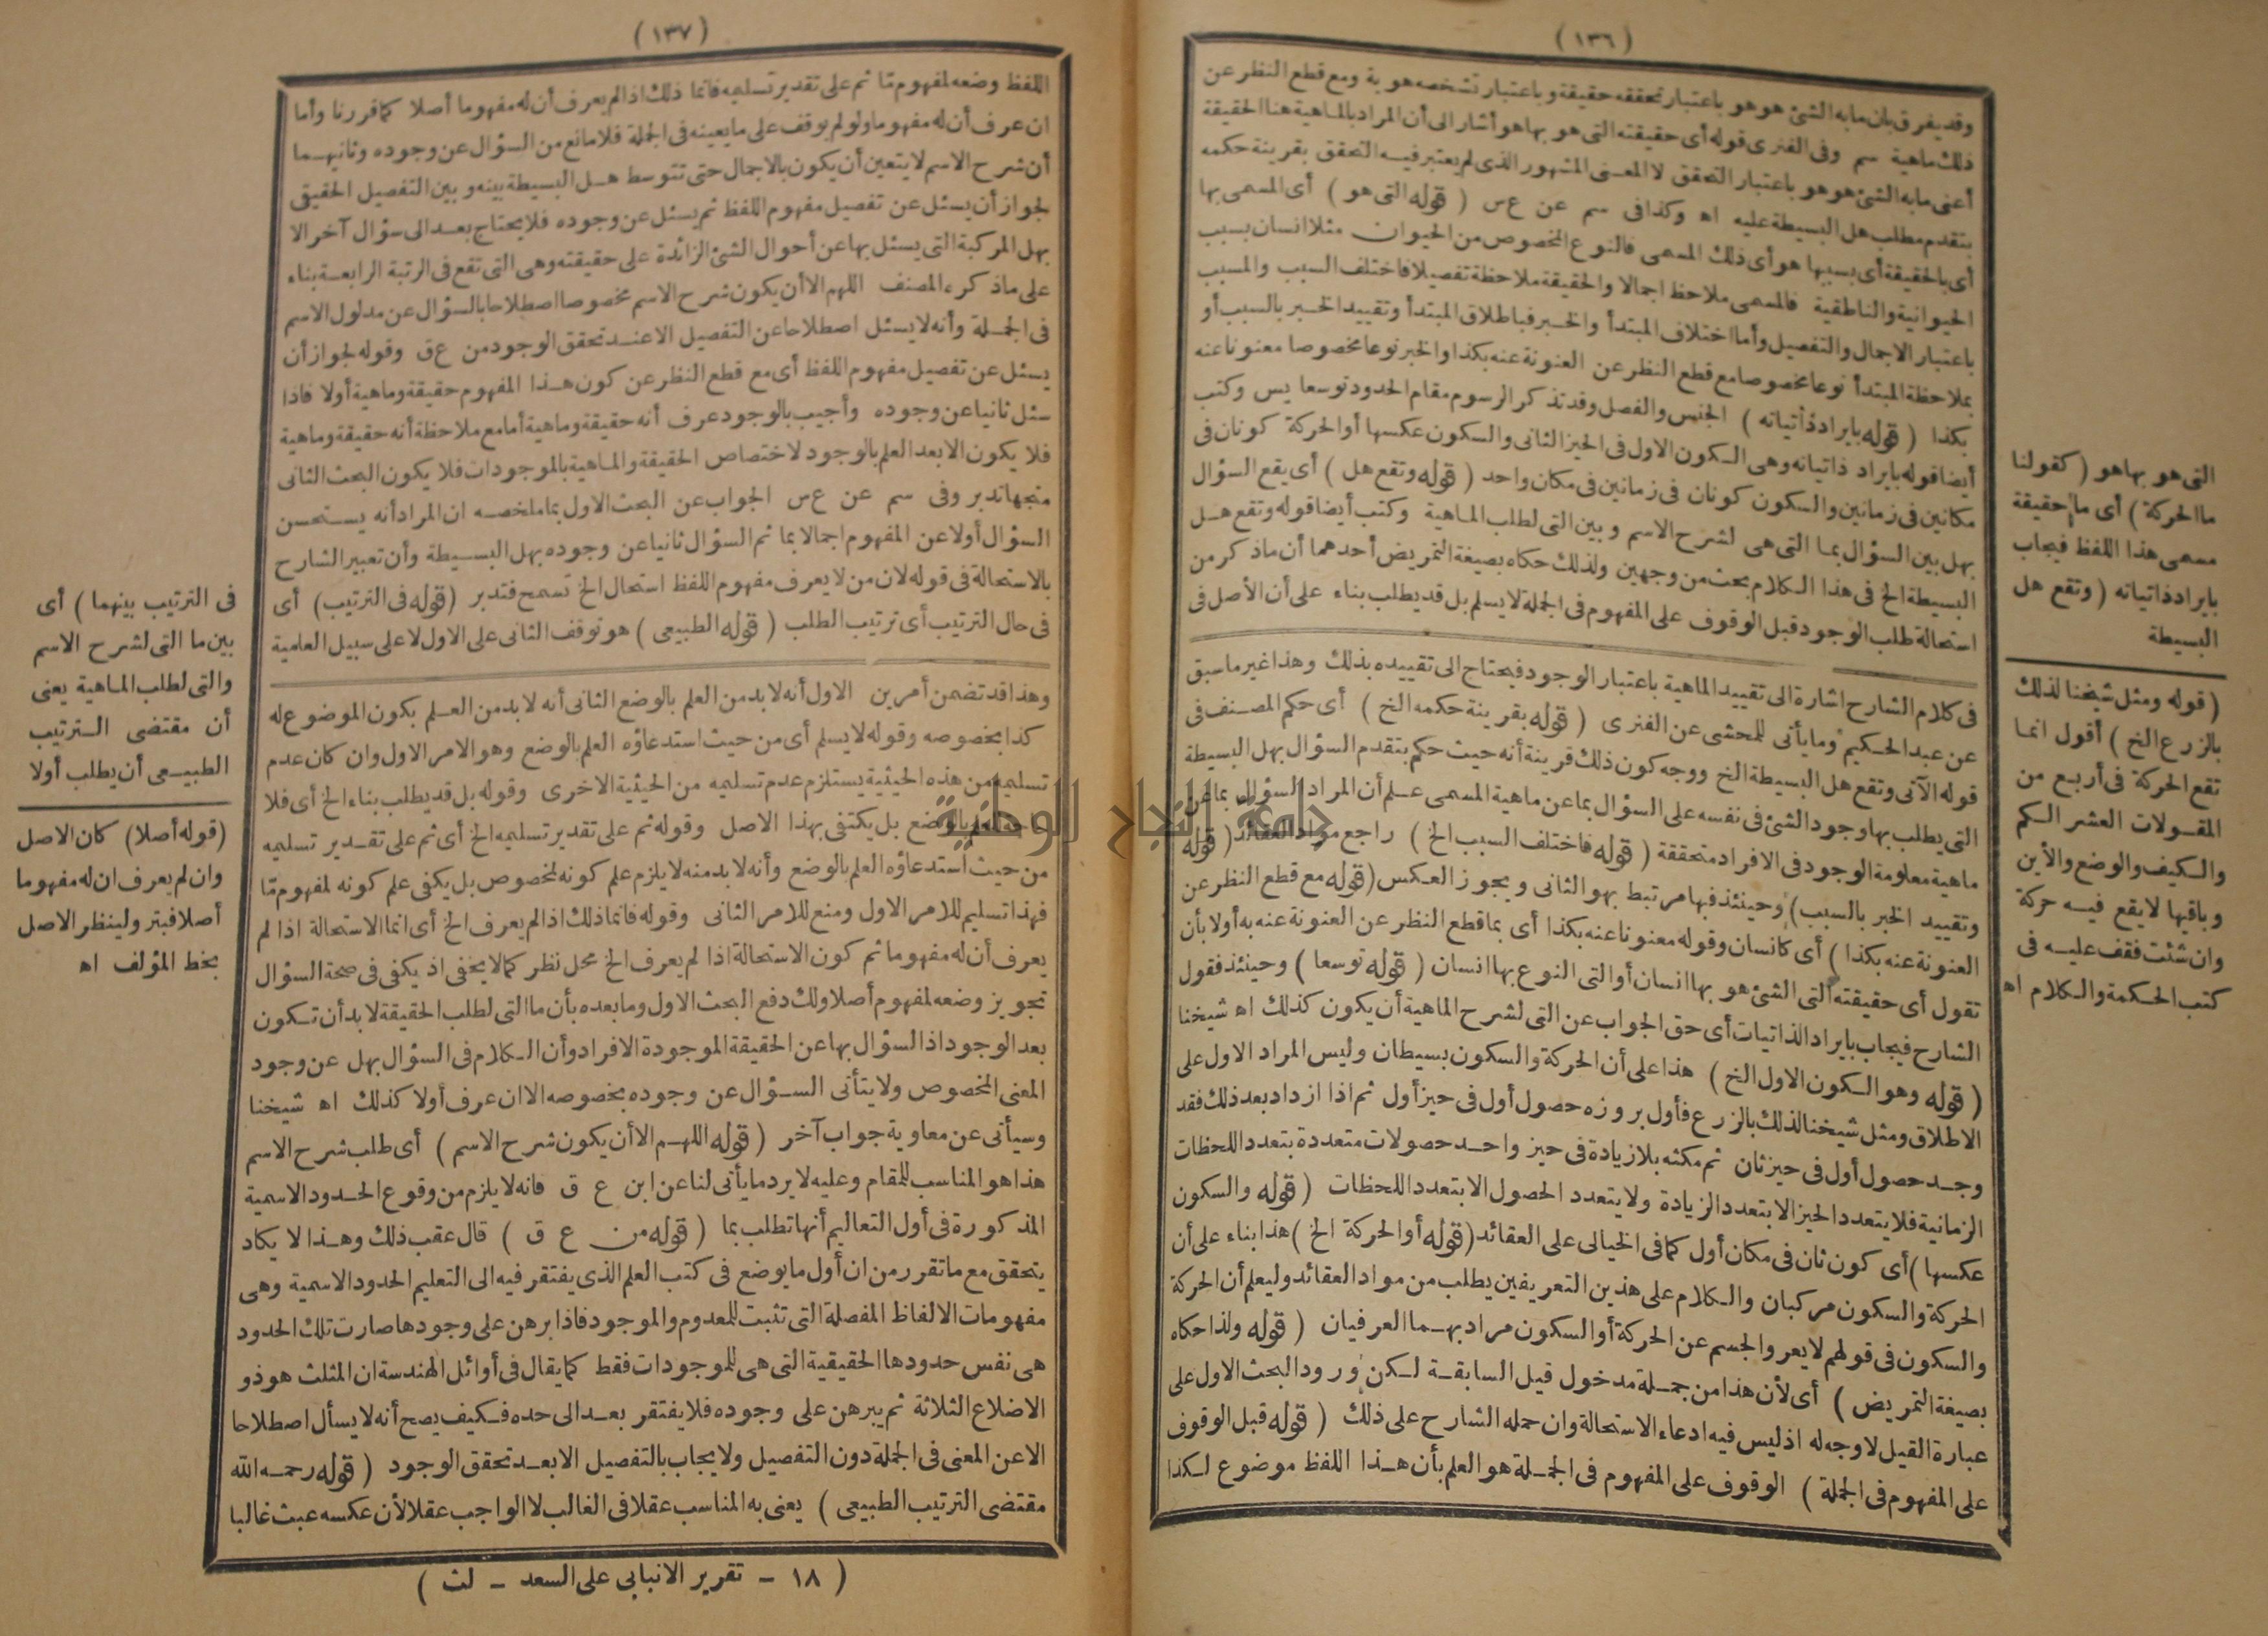 ( ١٣٦ )
وقد يفرق بان ما به الشئ هو هو باعتبار تحققه حقيقة و باعتبار تشخصه هوية ومع قطع النظر عن
ذلك ماهية سم وفى الفنرى قوله أى حقيقته التى هو بها هو أشار الى أن المراد بالماهية هنا الحقيقة
أعنى ما به الشئ هو هو باعتبار التحقق لا المعنى المشهور الذى لم يعتبر فيه التحقق بقرينة حكمه
بتقدم مطلب هل البسيطة عليه اه وكذا فى سم عن ع س ( قوله التى هو ) أى المسمى بها
أى بالحقيقة أى بسببها هو أى ذلك المسمى فالنوع المخصوص من الحيوان مثلا انسان بسبب
الحيوانية والناطقية فالمسمى ملاحظ اجمالا والحقيقة ملاحظة تفصيلا فاختلف السبب والمسبب
باعتبار الاجمال والتفصيل وأما اختلاف المبتدأ والخبر فباطلاق المبتدأ وتقييد الخبر بالسبب أو
بملاحظة المبتدأ نوعا مخصوصا مع قطع النظر عن العنونة عنه بكذا والخبر نوعا مخصوصا معنونا عنه
بكذا ( قوله بايراد ذأتياته ) الجنس والفصل وقد تذكر الرسوم مقام الحدود توسعا يس وكتب
أيضا قوله بايراد ذاتياته وهى السكون الاول فى الحيز الثانى والسكون عكسها أو الحركة كونان فى
مكانين فى زمانين والسكون كونان فى زمانين فى مكان واحد ( قوله وتقع هل ) أى يقع السؤال
بهل بين السؤال بما التى هى لشرح الاسم وبين التى لطلب الماهية وكتب أيضا قوله وتقع هل
البسيطة الخ فى هذا الكلام بحث من وجهين ولذلك حكاه بصيغة التمريض أحدهما أن ما ذكر من
استحالة طلب الوجود قبل الوقوف على المفهوم فى الجملة لا يسلم بل قد يطلب بناء على أن الأصل فى
فى كلام الشارح اشارة الى تقييد الماهية باعتبار الوجود فيحتاج الى تقييده بذلك وهذا غير ما سبق
عن عبد الحكيم وما يأتى للمحشى عن الفنرى ( قوله بقرينة حكمه الخ ) أى حكم المصنف فى
قوله الآتى وتقع هل البسيطة الخ ووجه كون ذلك قرينة أنه حيث حكم بتقدم السؤال بهل البسيطة
التى يطلب بها وجود الشئ فى نفسه على السؤال بما عن ماهية المسمى علم أن المراد السؤال بما عن
ماهية معلومة الوجود فى الافراد متحققة ( قوله فاختلف السبب الخ ) راجع مواد العقائد ( قوله
وتقييد الخبر بالسبب) وحينئذ فبها مرتبط بهو الثانى ويجوز العكس (قوله مع قطع النظر عن
العنونة عنه بكذا ) أى كانسان وقوله معنونا عنه بكذا أى بما قطع النظر عن العنونة عنه به أولا بأن
تقول أى حقيقته التى الشئ هو بها انسان أو التى النوع بها انسان ( قوله توسعا ) وحينئذ فقول
الشارح فيجاب بايراد الذاتيات أى حق الجواب عن التى لشرح الماهية أن يكون كذلك اه شيخنا
( قوله وهو السكون الاول الخ ) هذا على أن الحركة والسكون بسيطان وليس المراد الاول على
الاطلاق ومثل شيخنا لذلك بالزرع فأول بروزه حصول أول فى حيز أول ثم اذا ازداد بعد ذلك فقد
وجد حصول أول فى حيز ثان ثم مكثه بلا زيادة فى حيز واحد حصولات متعددة بتعدد اللحظات
الزمانية فلا يتعدد الحيز الا بتعدد الزيادة ولا يتعدد الحصول الا بتعدد اللحظات ( قوله والسكون
عكسها ) أى كون ثان فى مكان أول كما فى الخيالى على العقائد ( قوله أو الحركة الخ ) هذا بناء على أن
الحركة والسكون مركبان والكلام على هذين التعريفين يطلب من مواد العقائد وليعلم أن الحركة
والسكون فى قولهم لا يعرو الجسم عن الحركة أو السكون مراد بهما العرفيان ( قوله ولذا حكاه
بصيغة التمريض ) أى لأن هذا من جملة مدخول قيل السابقة لكن ورود البحث الاول على
عبارة القيل لا وجه له اذ ليس فيه ادعاء الاستحالة وان حمله الشارح على ذلك ( قوله قبل الوقوف
على المفهوم فى الجملة ) الوقوف على المفهوم فى الجملة هو العلم بأن هذا اللفظ موضوع لكذا
التى هو بها هو ( كقولنا
ما الحركة ) أى ما حقيقة
مسمى هذا اللفظ فيجاب
بايراد ذاتياته ( وتقع هل
البسيطة
( قوله ومثل شيخنا لذلك
بالزرع الخ ) أقول انما
تقع الحركة فى أربع من
المقولات العشر الكم
والكيف والوضع والأين
وباقيها لا يقع فيه حركة
وان شئت فقف عليه فى
كتب الحكمة والكلام اه
( ١٣٧ )
اللفظ وضعه لمفهوم تا ثم على تقدير تسليمه فانما ذلك اذا لم يعرف أن له مفهوما أصلا كما قررنا وأما
ان عرف أن له مفهوما ولو لم يوقف على ما يعينه فى الجملة فلا مانع من السؤال عن وجوده وثانيهما
أن شرح الاسم لا يتعين أن يكون بالاجمال حتى تتوسط هل البسيطة بينه وبين التفصيل الحقيقى
لجواز أن يسئل عن تفصيل مفهوم اللفظ ثم يسئل عن وجوده فلا يحتاج بعد الى سؤال آخر الا
بهل المركبة التى يسئل بها عن أحوال الشئ الزائدة على حقيقته وهى التى تقع فى الرتبة الرابعة بناء
على ما ذكره المصنف اللهم الا أن يكون شرح الاسم مخصوصا اصطلاحا بالسؤال عن مدلول الاسم
فى الجملة وأنه لا يسئل اصطلاحا عن التفصيل الا عند تحقق الوجود من ع ق وقوله لجواز أن
يسئل عن تفصيل مفهوم اللفظ أى مع قطع النظر عن كون هذا المفهوم حقيقة وماهية أولا فاذا
سئل ثانيا عن وجوده وأجيب بالوجود عرف أنه حقيقة وماهية أما مع ملاحظة أنه حقيقة وماهية
فلا يكون الا بعد العلم بالوجود لاختصاص الحقيقة والماهية بالموجودات فلا يكون البحث الثانى
متجها تدبر وفى سم عن ع س الجواب عن البحث الاول بما ملخصه ان المراد أنه يستحسن
السؤال أولا عن المفهوم اجمالا بما ثم السؤال ثانيا عن وجوده بهل البسيطة وأن تعبير الشارح
بالاستحالة فى قوله لان من لا يعرف مفهوم اللفظ استحال الخ تسمح فتدبر (قوله فى الترتيب) أى
فى حال الترتيب أى ترتيب الطلب ( قوله الطبيعى ) هو توقف الثانى على الاول لا على سبيل العامية
وهذا قد تضمن أمرين الاول أنه لا بد من العلم بالوضع الثانى أنه لا بد من العلم بكون الموضوع له
كذا بخصوصه وقوله لا يسلم أى من حيث استدعاؤه العلم بالوضع وهو الامر الاول وان كان عدم
تسليمه من هذه الحيثية يستلزم عدم تسليمه من الحيثية الاخرى وقوله بل قد يطلب بناء الخ أى فلا
بالوضع بل يكتفى بهذا الاصل وقوله ثم على تقدير تسليمه الخ أى ثم على تقدير تسليمه
من حيث استدعاؤه العلم بالوضع وأنه لا بد منه لا يلزم علم كونه لمخصوص بل يكفى علم كونه لمفهوم تا
فهذا تسليم للامر الاول ومنع للامر الثانى وقوله فانما ذلك اذا لم يعرف الخ أى انما الاستحالة اذا لم
يعرف أن له مفهوما ثم كون الاستحالة اذا لم يعرف الخ محل نظر كما لا يخفى اذ يكفى فى صحة السؤال
تجويز وضعه لمفهوم أصلا ولك دفع البحث الاول وما بعده بأن ما التى لطلب الحقيقة لا بد أن تكون
بعد الوجود اذ السؤال بها عن الحقيقة الموجودة الافراد وأن الكلام فى السؤال بهل عن وجود
المعنى المخصوص ولا يتأتى السؤال عن وجوده بخصوصه الا ان عرف أولا كذلك اه شيخنا
وسيأتى عن معاوية جواب آخر ( قوله اللهم الا أن يكون شرح الاسم ) أى طلب شرح الاسم
هذا هو المناسب للمقام وعليه لا يرد ما يأتى لنا عن ابن ع ق فانه لا يلزم من وقوع الحدود الاسمية
المذكورة فى أول التعاليم أنها تطلب بما ( قوله من ع ق ) قال عقب ذلك وهذا لا يكاد
يتحقق مع ما تقرر من ان أول ما يوضع فى كتب العلم الذى يفتقر فيه الى التعليم الحدود الاسمية وهى
مفهومات الالفاظ المفصلة التى تثبت للمعدوم والموجود فاذا برهن على وجودها صارت تلك الحدود
هى نفس حدودها الحقيقية التى هى للموجودات فقط كما يقال فى أوائل الهندسة ان المثلث هو ذو
الاضلاع الثلاثة ثم يبرهن على وجوده فلا يفتقر بعد الى حده فكيف يصح أنه لا يسأل اصطلاحا
الا عن المعنى فى الجملة دون التفصيل ولا يجاب بالتفصيل الا بعد تحقق الوجود ( قوله رحمه الله
مقتضى الترتيب الطبيعى ) يعنى به المناسب عقلا فى الغالب لا الواجب عقلا لأن عكسه عبث غالبا
فى الترتيب بينهما ) أى
بين ما التى لشرح الاسم
والتى لطلب الماهية يعنى
أن مقتضى الترتيب
الطبيعى أن يطلب أولا
(قوله أصلا) كان الاصل
وان لم يعرف ان له مفهوما
أصلا فبتر ولينظر الاصل
بخط المؤلف اه
( ١٨ - تقرير الانبابى على السعد - لث )
جامعة النجاح الوطنية